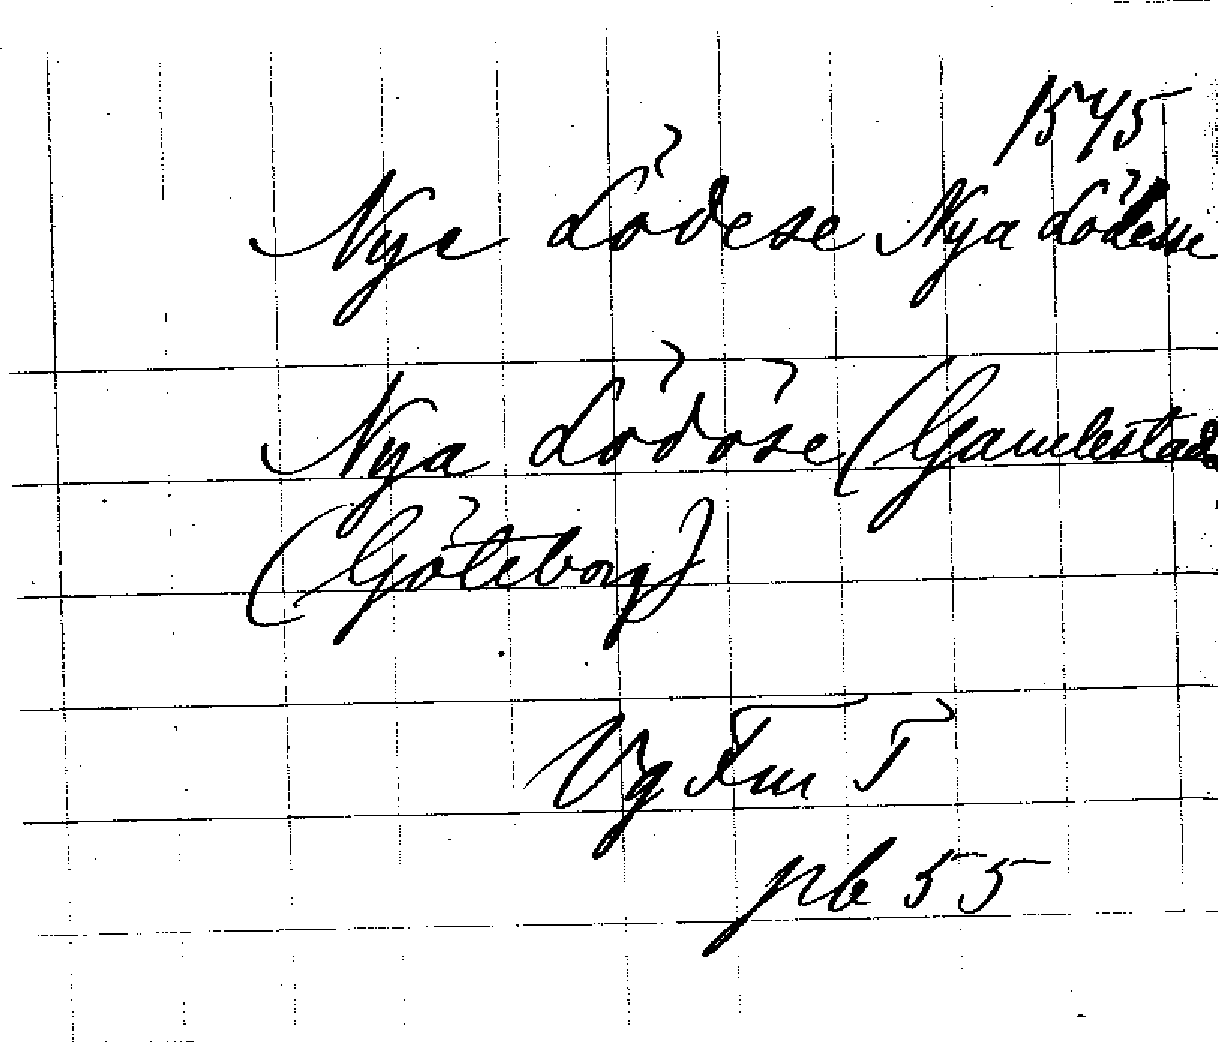 1545
Nye Lödese Nya Lödesse
Nya Lödöse (Gamlestad
(Göteborg)
Vg Fru T
pb 55